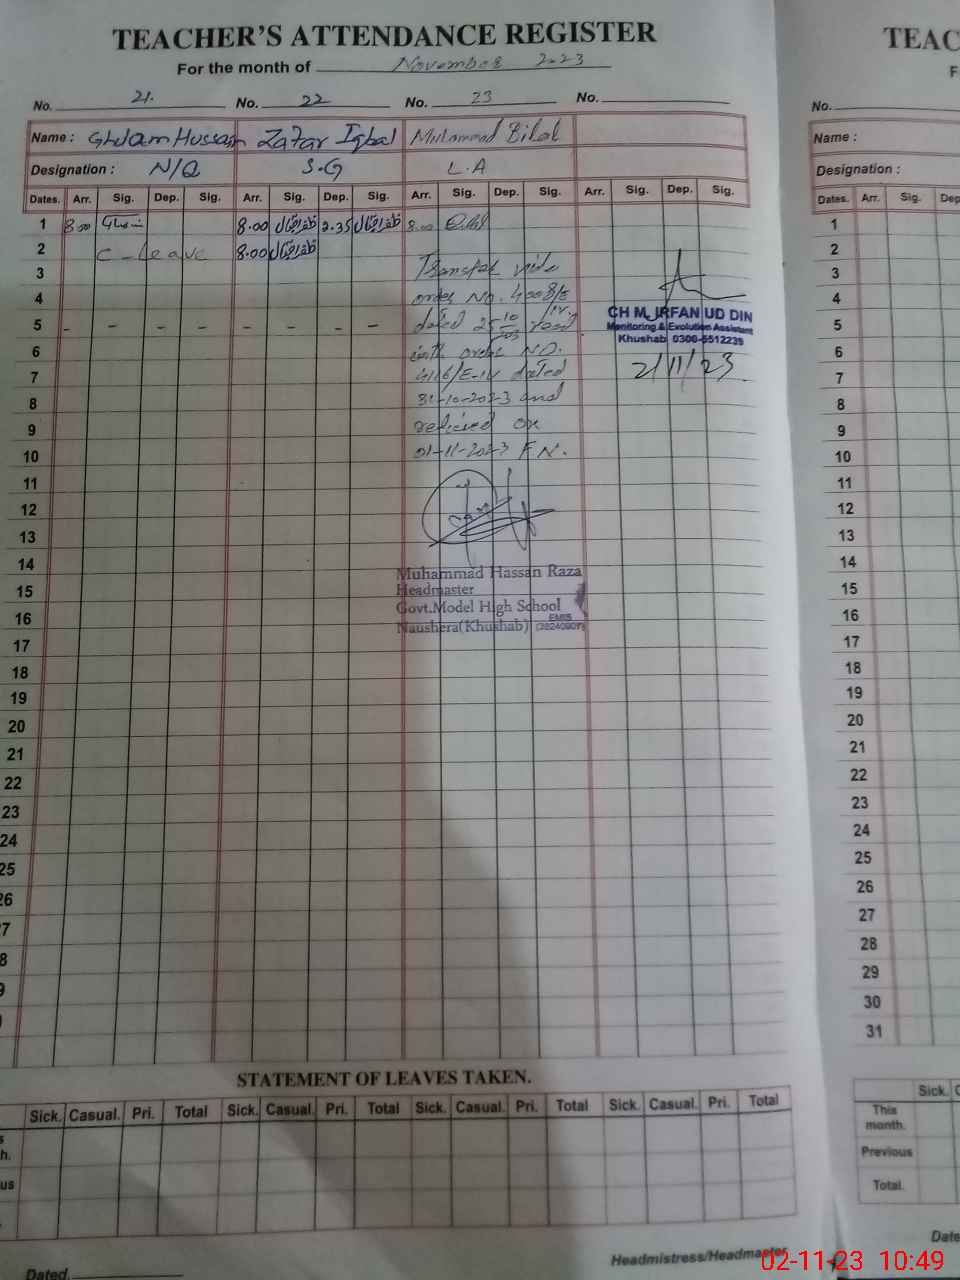 TEACHER'S ATTENDANCE REGISTER
For the month of November 2023
No. 21. No. 22 No. 23 No.
Name : Ghulam Hussain Zafar Iqbal Muhammad Bilal
Designation : N/Q S.G L.A
Dates. Arr. Sig. Dep. Sig. Arr. Sig. Dep. Sig. Arr. Sig. Dep. Sig. Arr. Sig. Dep. Sig.
1 8.00 8.00 ظفر اقبال 2.35 ظفر اقبال 8.00
2 C-Leave 8.00 ظفر اقبال
3 Transfer vide
4 order No. 4008/E
5 - - - - - - - - dated 25 10 read
6 with order NO.
7 4116/E-IV dated
8 31-10-2023 and
9 relieved on
10 01-11-2023 F.N.
CH M. IRFAN UD DIN
Monitoring & Evolution Assistant
Khushab 0300-5512235
2/11/23
11
12
13
14
15
16
17
18
19
20
21
22
23
24
25
26
7
8
9
Muhammad Hassan Raza
Headmaster
Govt.Model High School
Naushera(Khushab) EMIS
STATEMENT OF LEAVES TAKEN.
Sick. Casual. Pri. Total Sick. Casual. Pri. Total Sick. Casual. Pri. Total Sick. Casual. Pri. Total
s
h.
us
Dated.
Headmistress/Headmaster
TEAC
F
No.
Name :
Designation :
Dates. Arr. Sig. Dep
1
2
3
4
5
6
7
8
9
10
11
12
13
14
15
16
17
18
19
20
21
22
23
24
25
26
27
28
29
30
31
Sick. C
This
month.
Previous
Total.
Date
02-11-23 10:49